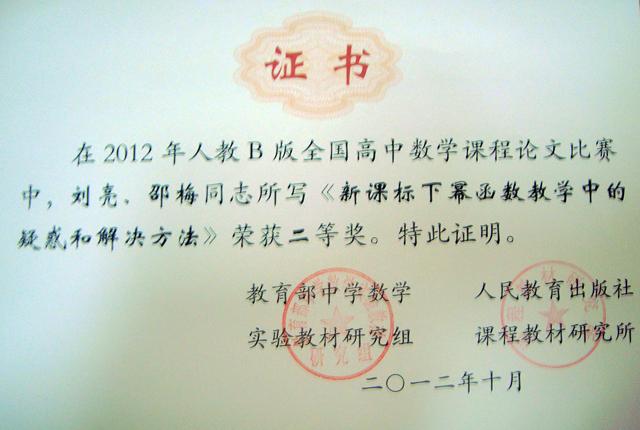 证书
在2012年人教B版全国高中数学课程论文比赛
中，刘亮、邵梅同志所写《新课标下幂函数教学中的
疑惑和解决方法》荣获二等奖。特此证明。
教育部中学数学 人民教育出版社
实验教材研究组 课程教材研究所
研究组
二〇一二年十月